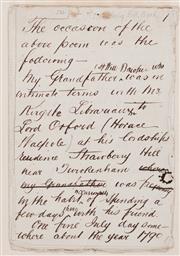 1
The occasion of the
above poem was the
following —
My Grandfather was in
intimate terms with Mr
Kirgate Librarian to
Lord Orford (Horace
Walpole at his lordships
residence Strawberry Hill
near Twickenham
my Grandfather was
in the habit of spending a
few days with his friend.
One fine July day some
where about the year 1790